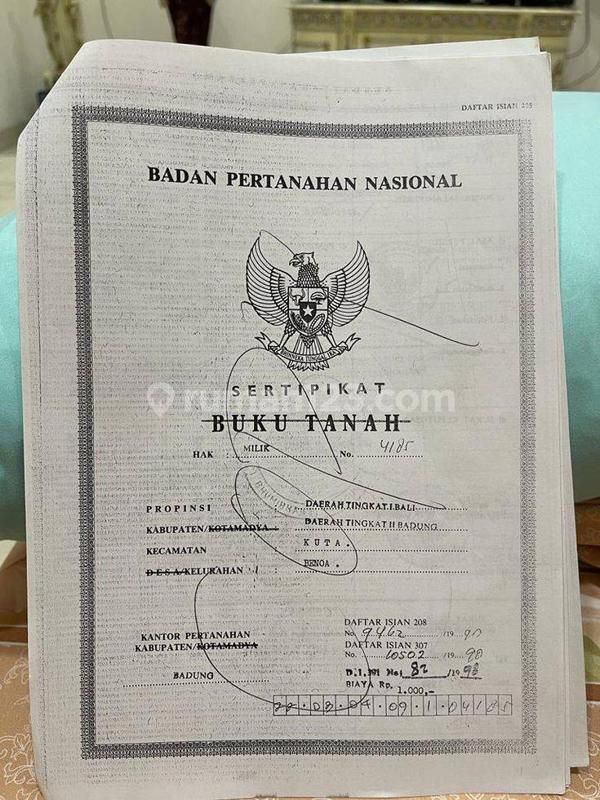 DAFTAR ISIAN 205
BADAN PERTANAHAN NASIONAL
BHINNEKA TUNGGAL IKA
SERTIPIKAT
rumah123.com
BUKU TANAH
HAK : MILIK No. 4185
PROPINSI : DAERAH TINGKAT I.BALI
KABUPATEN/KOTAMADYA : DAERAH TINGKAT II BADUNG
KECAMATAN : KUTA.
DESA/KELURAHAN : BENOA.
DAFTAR ISIAN 208
No. 9462 /19 90
KANTOR PERTANAHAN
KABUPATEN/KOTAMADYA
BADUNG
DAFTAR ISIAN 307
No. 10502 /19 90
D.I.301 No: 82 /19 98
BIAYA Rp. 1.000,-
22.03.04.09.1.04185